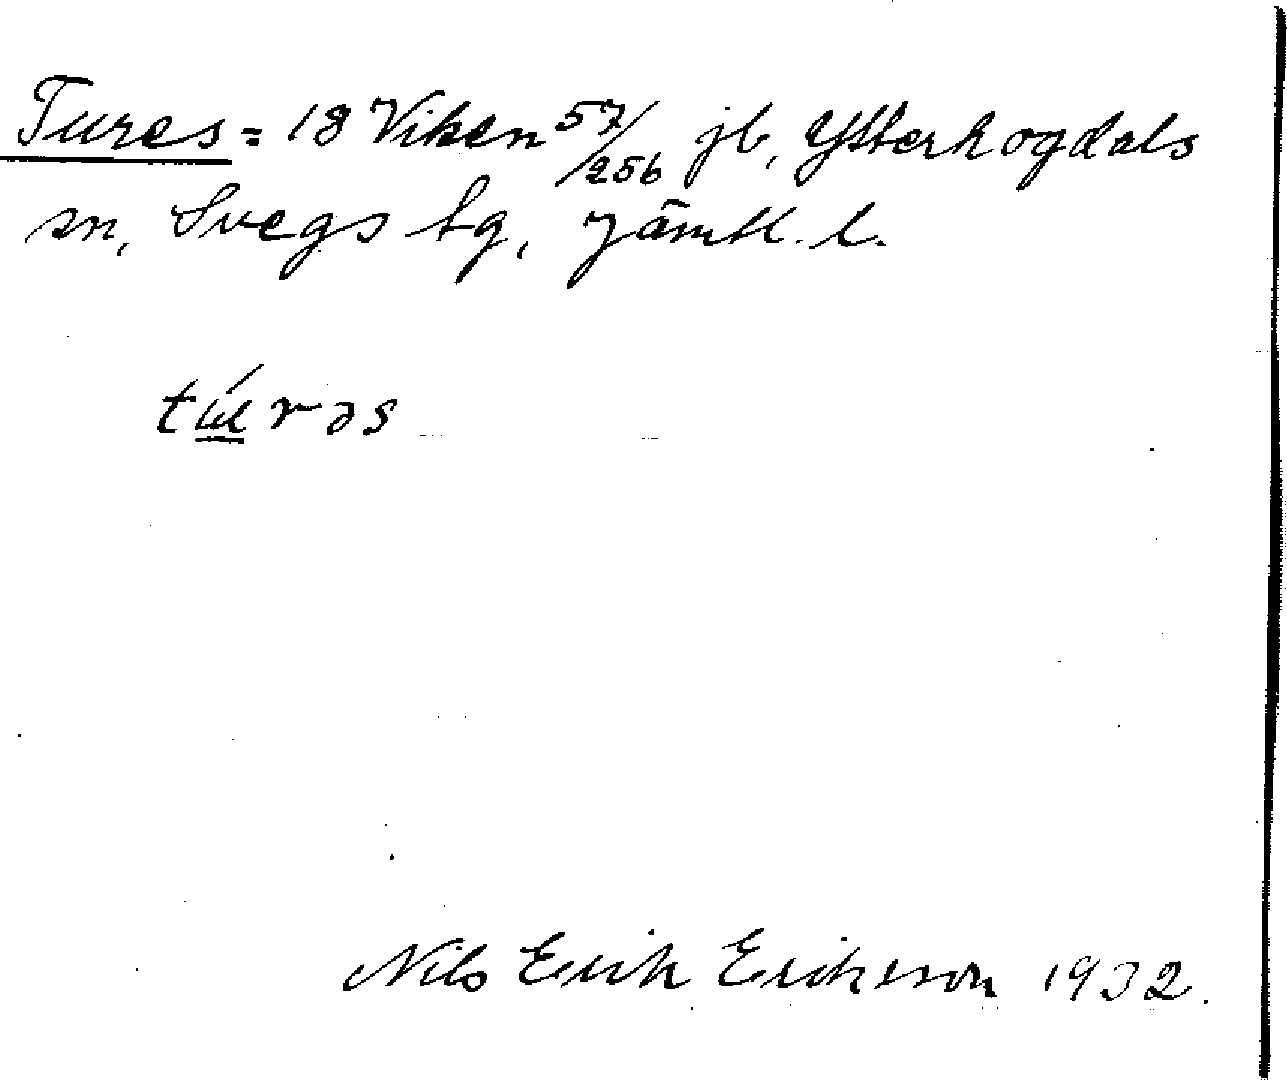 Tures = 18 Viken 57/256 jb, Ytterhogdals
sn, Svegs tg, Jämtl. l.
túrəs
Nils Erik Eriksson 1932.